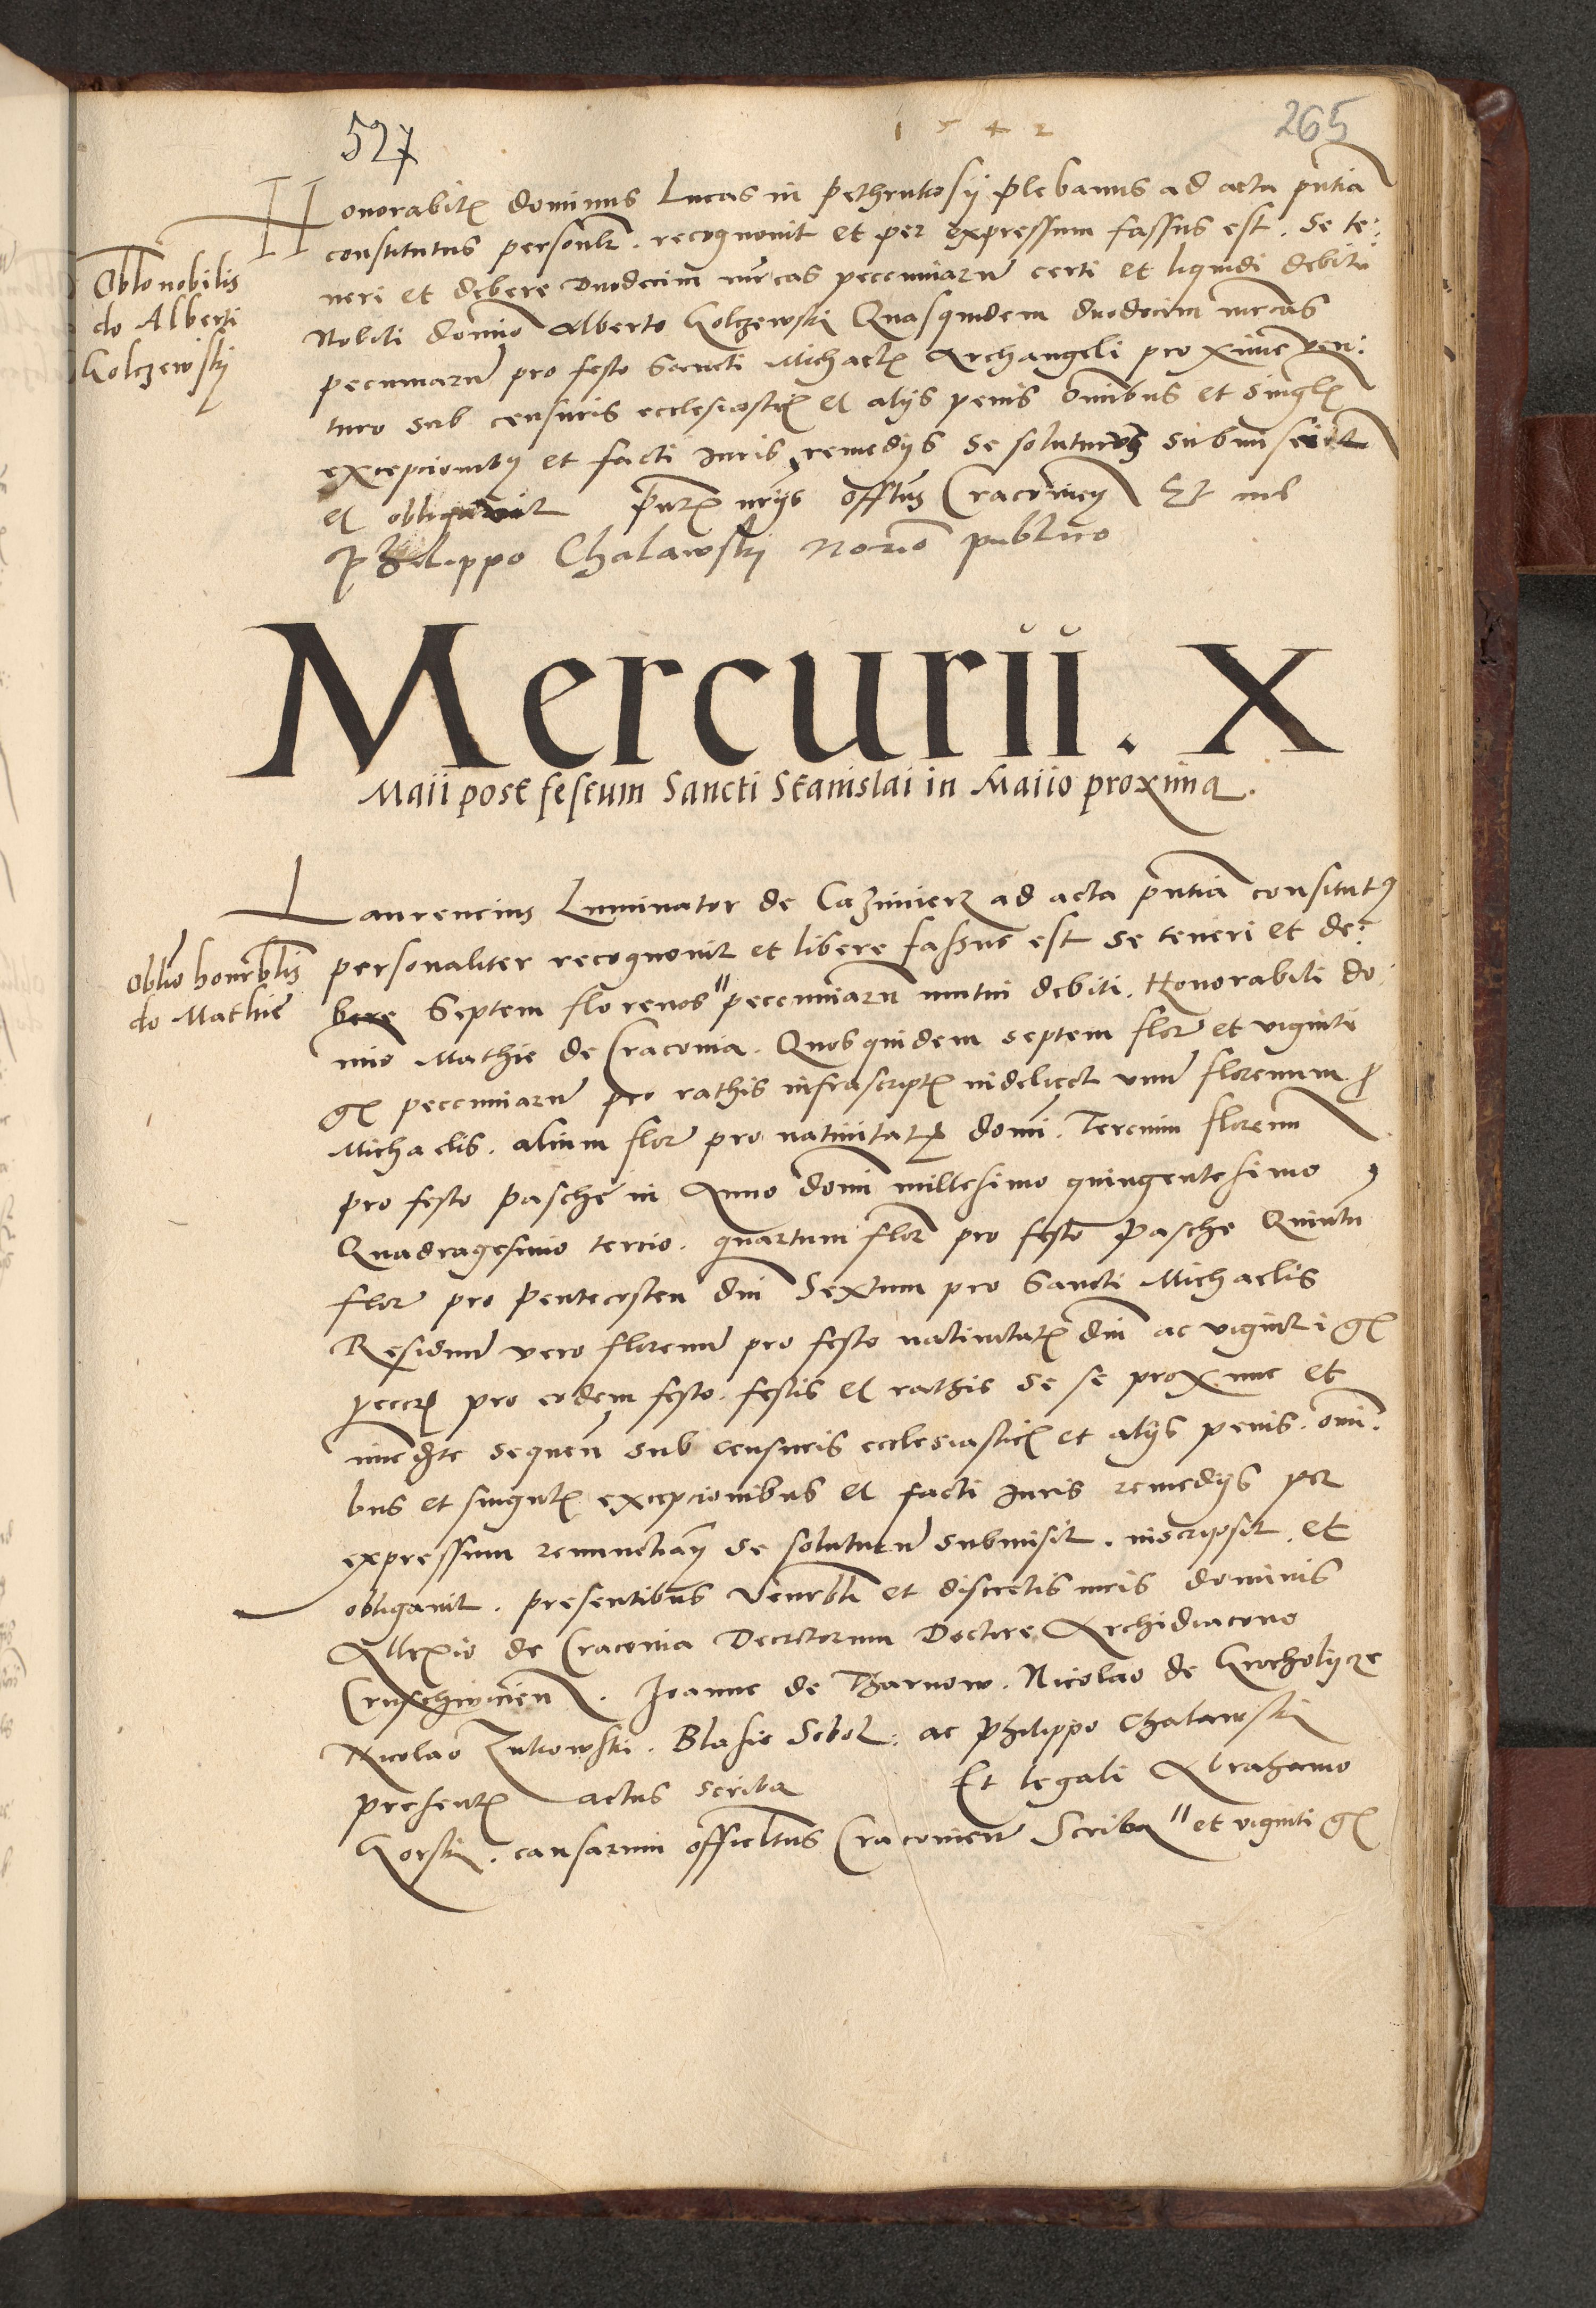 527
1542
265
Honorabil dominus Lucas in Pethrukosij plebanus ad acta pntia
constitutus personlr. recognovit et per expressum fassus est. se te:
neri et debere duodecim mrcas pecuniarum certi et liquidi debiti
Nobili domino Alberto Golczewski Quasquidem duodecim mrcas
pecuniarum pro festo Sancti Michael Archangeli proxime ven:
turo sub censuris ecclesiastic et alijs penis omnibus et singul
excepcionibus et facti iuris remedijs se soluturum submisit
et obligavit pntibus Offtus Cracovien Et me
Philippo Chalawskij Notario publico
Oblo nobilis
do Alberti
Golczewskij
Mercurii. X
Maii post festum Sancti Stanislai in Maiio proxima.
Laurencius Luminator de Cazimierz ad acta pntia constitutus
personaliter recognovit et libere fassus est se teneri et de:
bere Septem florenos " pecuniarum mutui debiti. Honorabili do
mino Mathie de Cracovia. Quosquidem septem flor et viginti
gr pecuniarum pro rathis infrascript videlicet unum florenum p
Michaelis. alium flor pro nativitate domi. Tercium florenum
pro festo pasche in Anno domi millesimo quingentesimo
Quadragesimo tercio. quartum flor pro festo Pasche Quintum
flor pro Pentecosten dni Sextum pro Sancti Michaelis
Residuum vero florenum pro festo nativitat dni ac viginti gr
peccr pro eodem festo. festis et rathis se se proxime et
immediate sequen sub censuris ecclesiastic et alijs penis. omi:
bus et singul excepcionibus et facti iuris remedijs per
expressum renunctian se soluturum submisit. inscripsit. et
obligavit. presentibus Venerbli et discretis viris dominis
Allexio de Cracovia Decretorum Doctore Archidiacono
Cruschwicien. Joanne de Tharnow. Nicolao de Grocholycze
Nicolao Zukowski. Blasio Sebol. ac Philippo Chalawskij
present actus scriba Et legali Abrahamo
Gorskij. causarum officiltus Cracovien Scriba " et viginti gr
Oblio honrblis
do Mathie